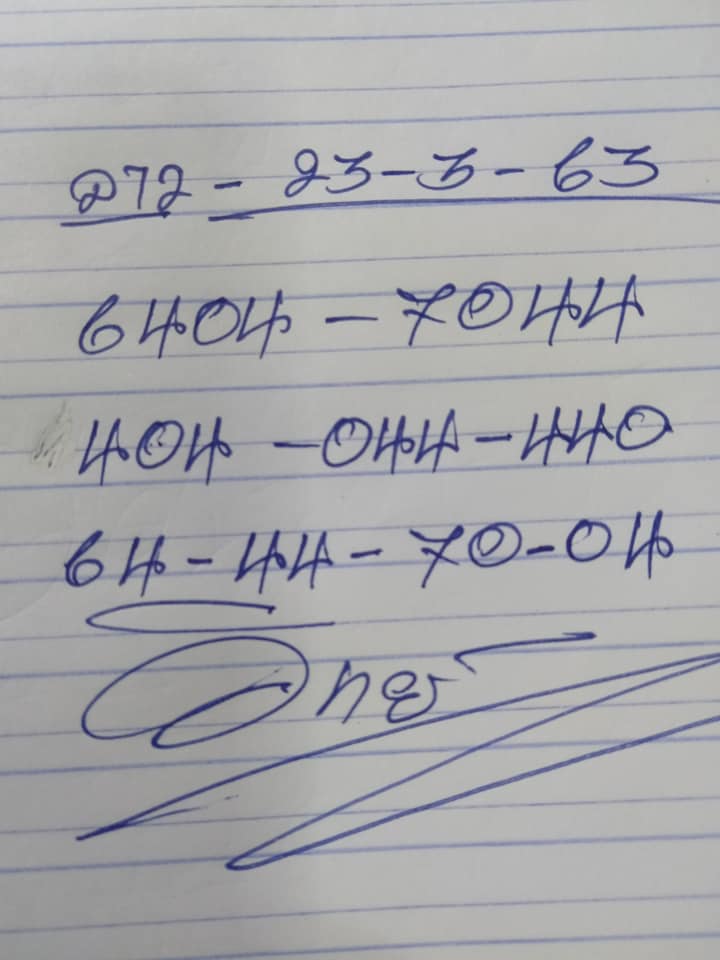 ลาว - 23-3-63
6404 - 7044
404 - 044 - 440
64 - 44 - 70 - 04